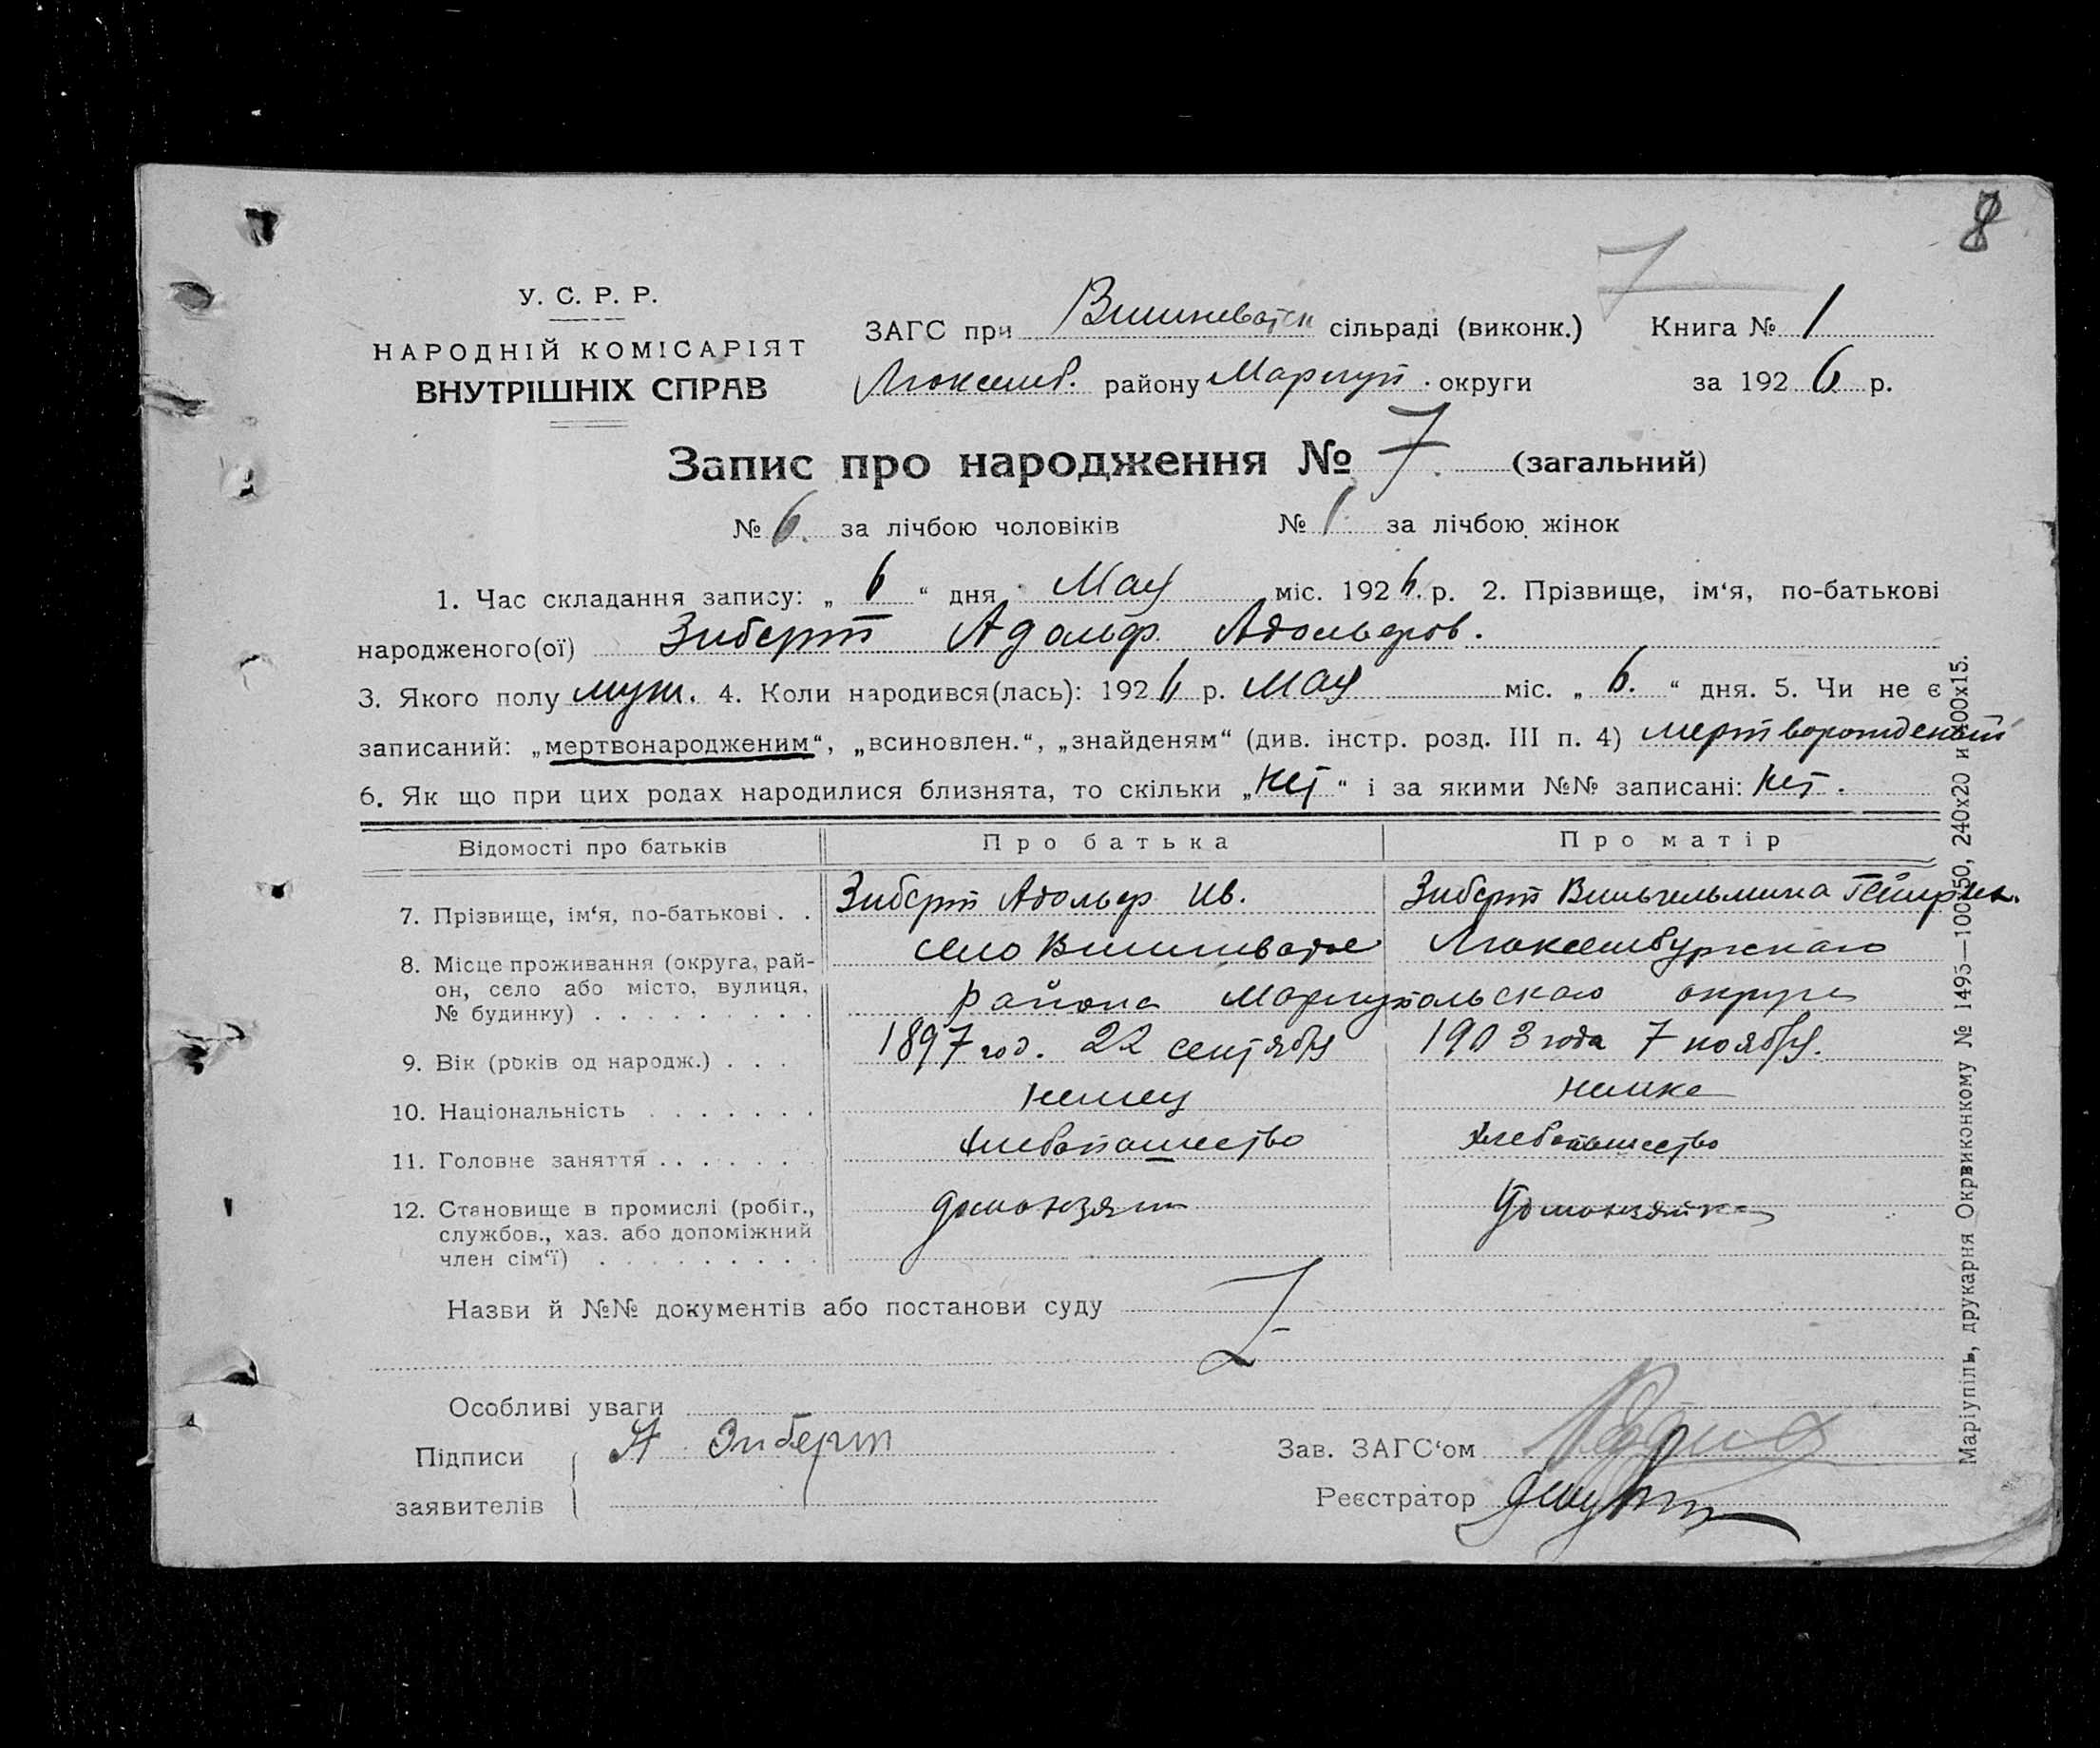 8
7
У. С. Р. Р.
НАРОДНІЙ КОМІСАРІЯТ
ВНУТРІШНІХ СПРАВ
ЗАГС при Вишневатск сільраді (виконк.) Книга № 1
Люксемб. району Мариуп. округи за 1926 р.
Запис про народження № 7. (загальний)
№ 6. за лічбою чоловіків № 1 за лічбою жінок
1. Час складання запису: „ 6 “ дня Мая міс. 1926. р. 2. Прізвище, ім‘я, по-батькові
народженого(ої) Зиберт Адольф Адольфов.
3. Якого полу муж. 4. Коли народився(лась): 1926 р. Мая міс. „ 6. “ дня. 5. Чи не є
записаний: „мертвонародженим“, „всиновлен.“, „знайденям“ (див. інстр. розд. III п. 4) мертворожденный
6. Як що при цих родах народилися близнята, то скільки „нет“ і за якими №№ записані: нет.
Відомості про батьків Про батька Про матір
7. Прізвище, ім‘я, по-батькові . . Зиберт Адольф Ив. Зиберт Вильгельмина Гейнрих.
8. Місце проживання (округа, рай-
он, село або місто, вулиця,
№ будинку) . . . . . . . . .
село Вишневатое Люксембургского
района Мариупольского округа
9. Вік (років од народж.) . . . 1897 год. 22 сентября 1903 года 7 ноября.
10. Національність . . . . . . . немец немка
11. Головне заняття . . . . . . хлебопашество хлебопашество
12. Становище в промислі (робіт.,
службов., хаз. або допоміжний
член сім‘ї) . . . . . . . . .
домохозяин домохозяйка
Назви й №№ документів або постанови суду
Особливі уваги
Підписи
заявителів
А Зиберт
Зав. ЗАГС‘ом
Реєстратор
Маріупіль, друкарня Окрвиконкому № 1495—100х50, 240х20 и 400х15.